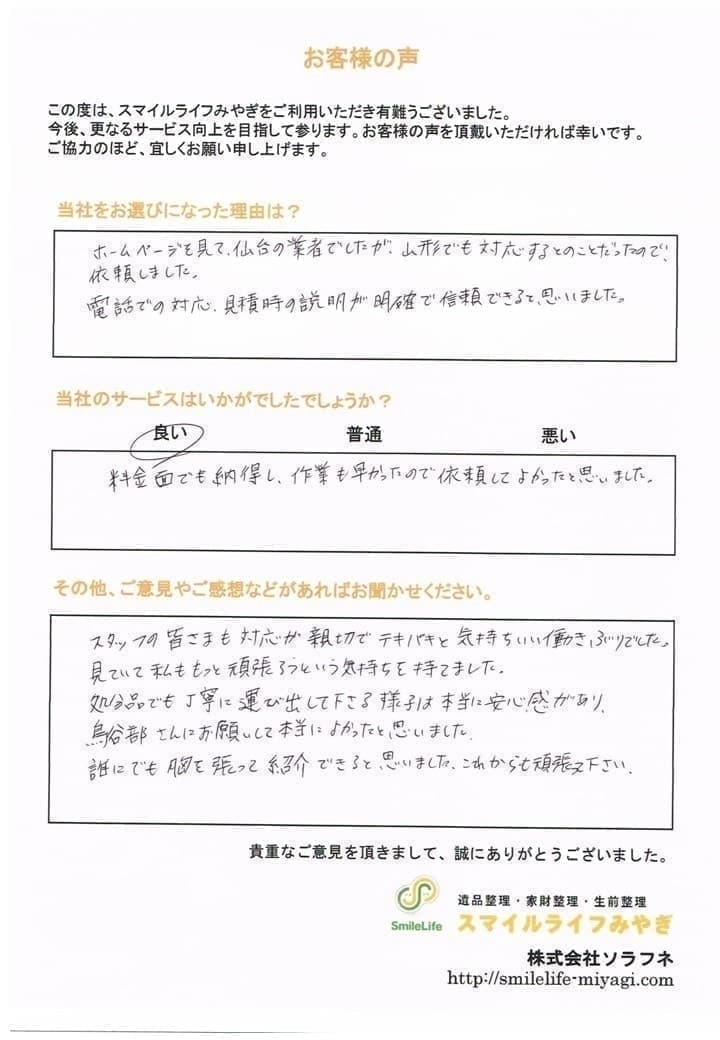 お客様の声
この度は、スマイルライフみやぎをご利用いただき有難うございました。
今後、更なるサービス向上を目指して参ります。お客様の声を頂戴いただければ幸いです。
ご協力のほど、宜しくお願い申し上げます。
当社をお選びになった理由は？
ホームページを見て、仙台の業者でしたが、山形でも対応するとのことだったので、
依頼しました。
電話での対応、見積時の説明が明確で信頼できると思いました。
当社のサービスはいかがでしたでしょうか？
良い 普通 悪い
料金面でも納得し、作業も早かったので依頼してよかったと思いました。
その他、ご意見やご感想などがあればお聞かせください。
スタッフの皆さまも対応が親切でテキパキと気持ちいい働きぶりでした。
見ていて私ももっと頑張ろうという気持ちを持てました。
処分品でも丁寧に運び出して下さる様子は本当に安心感があり、
鳥谷部さんにお願いして本当によかったと思いました。
誰にでも胸を張って紹介できると思いました。これからも頑張って下さい。
貴重なご意見を頂きまして、誠にありがとうございました。
SmileLife
遺品整理・家財整理・生前整理
スマイルライフみやぎ
株式会社ソラフネ
http://smilelife-miyagi.com